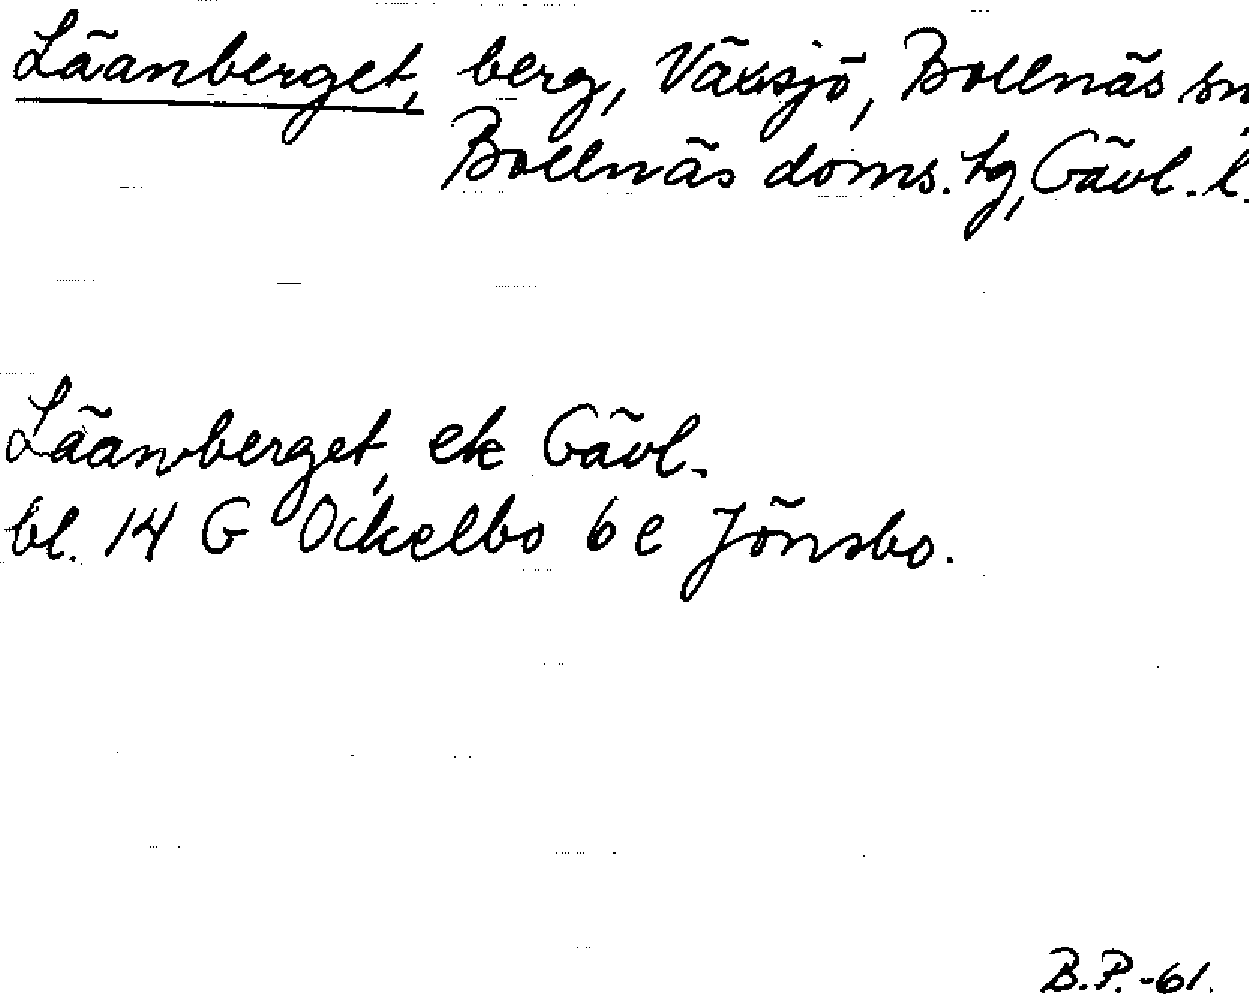 Läanberget, berg, Växsjö, Bollnäs sn
Bollnäs doms. tg, Gävl. l.
Läanberget, ek Gävl.
bl. 14 G Ockelbo 6 e Jönsbo.
B.P.-61.